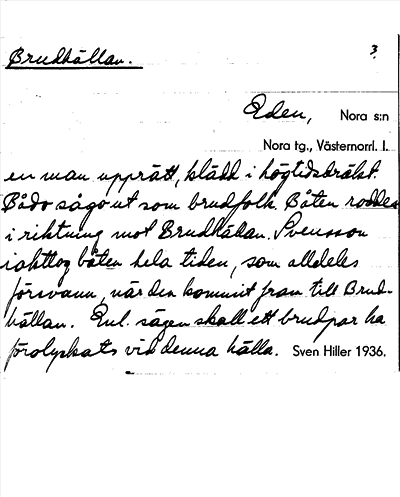 Brudhällan.
3
Eden, Nora s:n
Nora tg., Västernorrl. l.
en man upprätt, klädd i högtidsdräkt.
Både sågo ut som brudfolk. Båten roddes
i riktning mot Brudhällan. Svensson
iakttog båten hela tiden, som alldeles
försvann, när den kommit fram till Brud-
hällan. Enl. sägen skall ett brudpar ha
förolyckats vid denna hälla. Sven Hiller 1936.